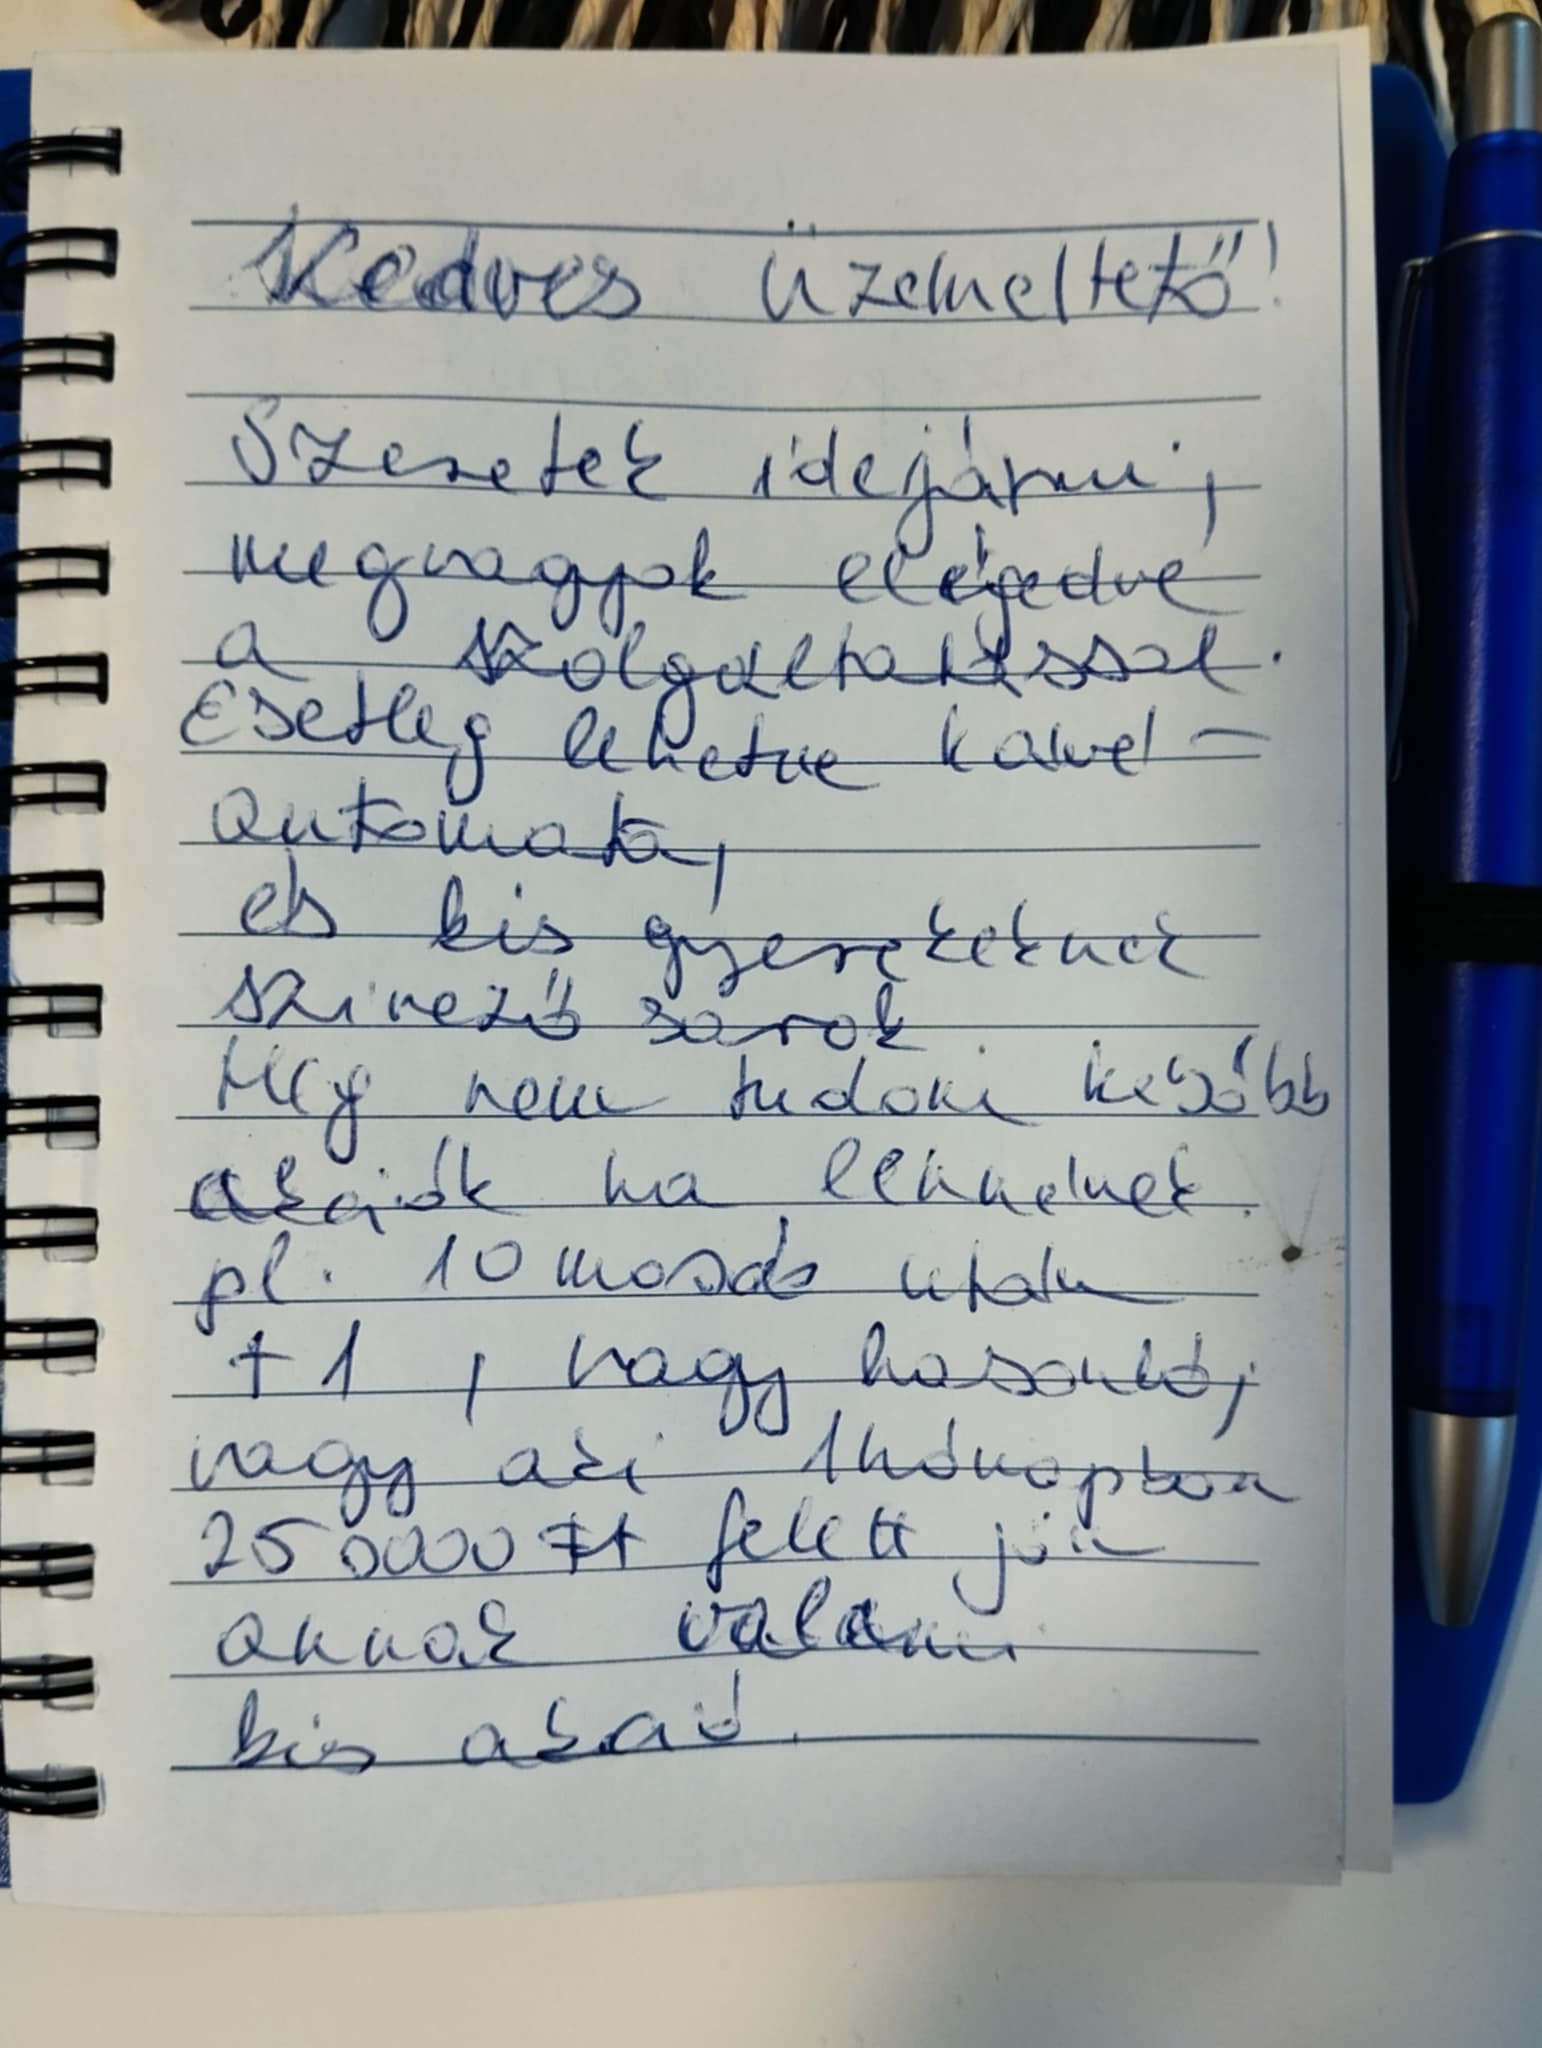 Kedves Üzemeltető!
Szeretek idejárni,
megvagyok elégedve
a szolgáltatással.
Esetleg lehetne kávé-
automata,
és kis gyerekeknek
színező sarok.
Még nem tudom később
akciók ha lennének.
pl. 10 mosás után
+1, vagy hasonló,
vagy aki 1 hónapban
25 0000 Ft felett jön
annak valami
kis akció.